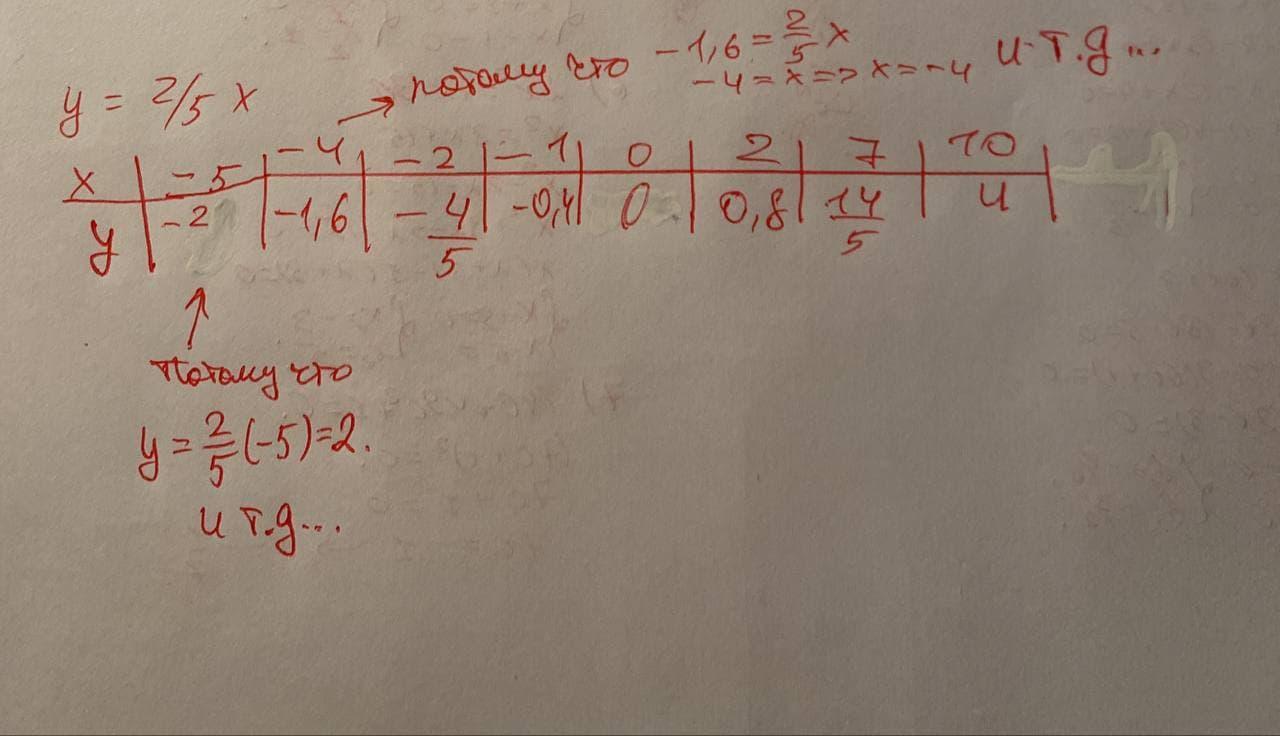 y = 2/5 x
потому что -1,6 = 2/5 x и т.д...
-4 = x => x = -4
x | -5 | -4 | -2 | -1 | 0 | 2 | 7 | 10
y | -2 | -1,6 | -4/5 | -0,4 | 0 | 0,8 | 14/5 | 4
Потому что
y = 2/5 (-5) = 2.
и т.д...